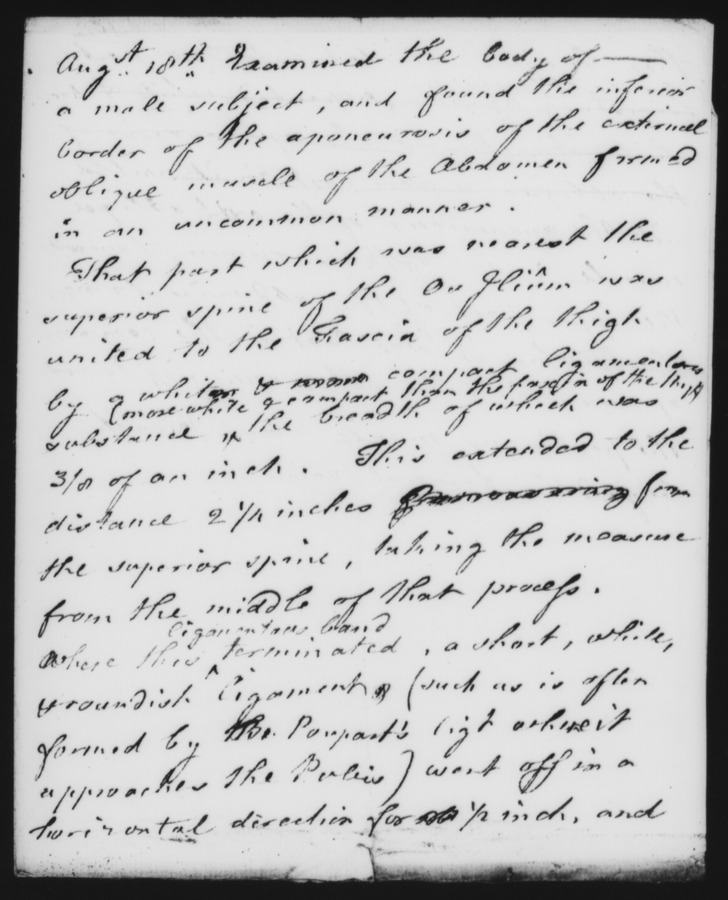 Augst 18th Examined the body of —
a male subject, and found the inferior
border of the aponeurosis of the external
oblique muscle of the Abdomen formed
in an uncommon manner.
That part which was nearest the
superior spine of the Os Ilium was
united to the Fascia of the thigh
by a white & compact ligamentous
(more white & compact than the fascia of the thigh
substance, the breadth of which was
3/8 of an inch. This extended to the
distance 2 1/2 inches from
the superior spine, taking the measure
from the middle of that process.
ligamentous band
Where this terminated, a short, white,
& roundish ligament (such as is often
formed by the Poupart's ligt where it
approaches the Pubis) went off in a
horizontal direction for 1/2 inch, and